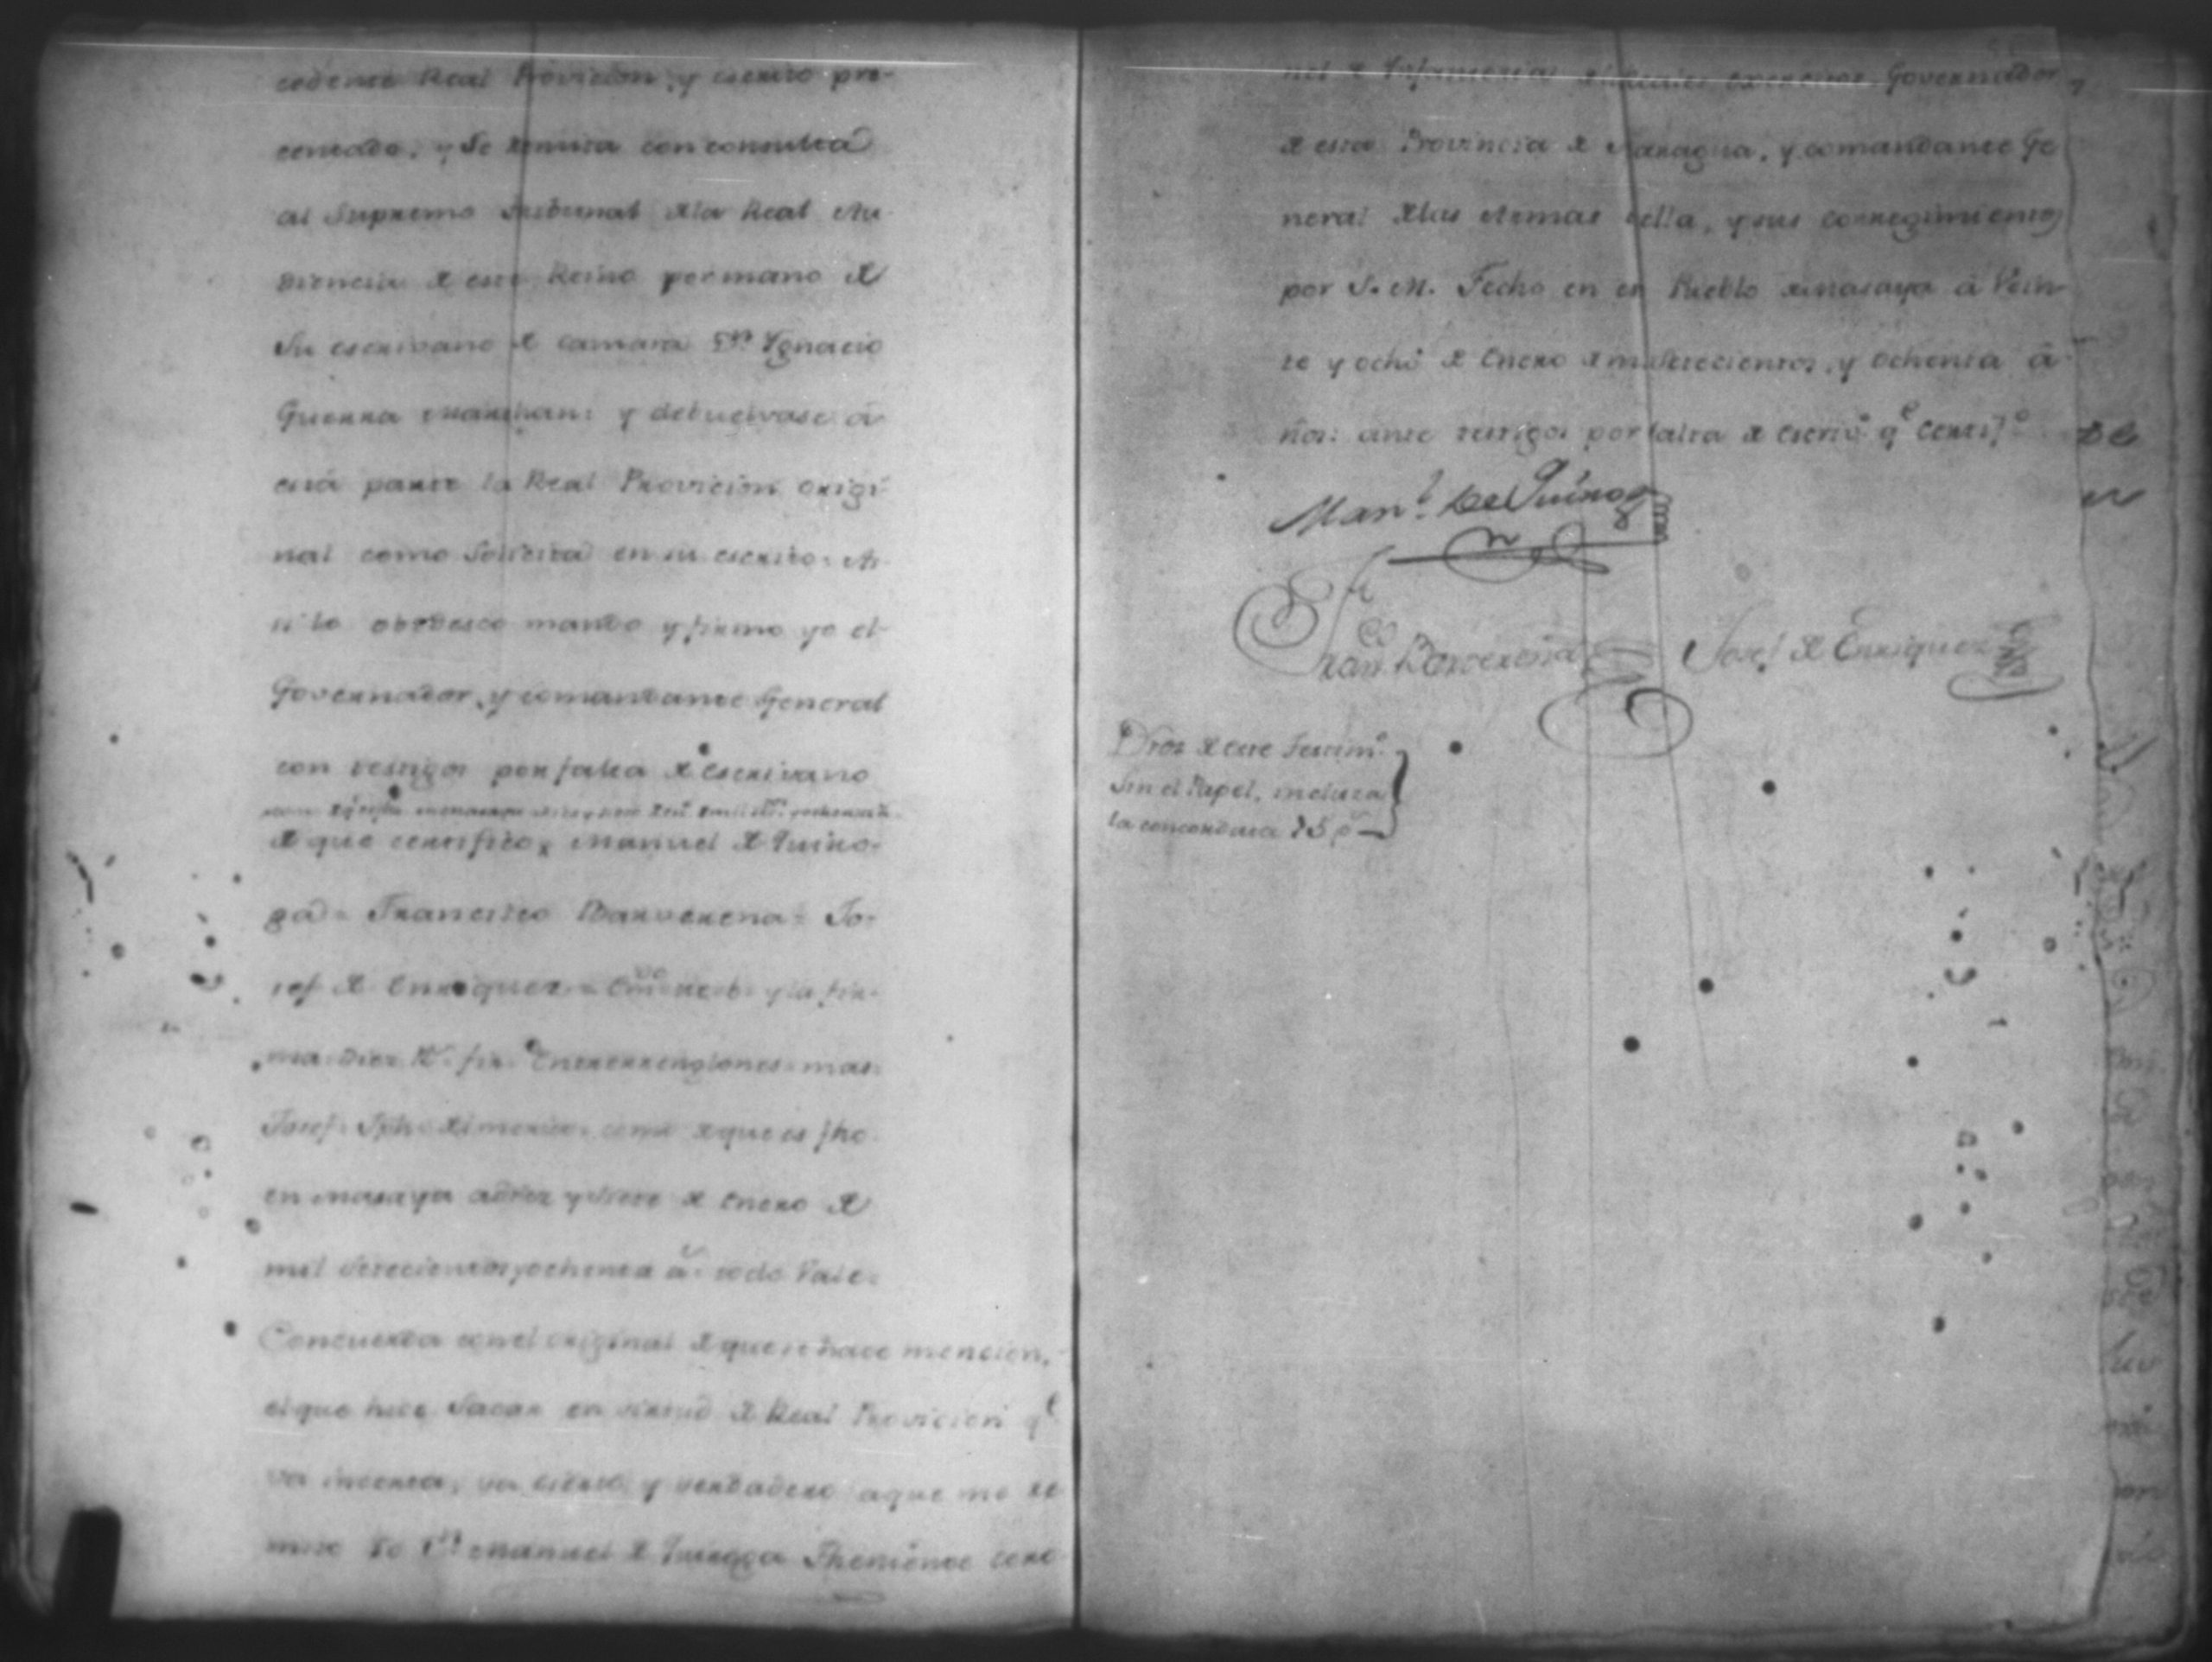 cedente Real Provicion, y escrito pre-
centado, y Se remita con consulta
al Supremo Tribunal dela Real Au-
diencia de este Reino por mano de
Su escrivano de camara Dn Ygnacio
Guerra Marchan: y debuelvase á
esta parte la Real Provicion origi-
nal como Solicita en su escrito: A-
si lo obedesco mando y firmo yo el
Governador, y comandante General
con testigos por falta de escrivano
de que certifico, Manuel de Quiro-
ga = Francisco Barverena = Jo-
sef de Enrriquez =
y la fir-
ma Diez
Entrerrenglones = mas:
Josef
que es fho
en Masaya a diez y siete de Enero de
mil Setecientos y ochenta a. todo Vale =
Concuerda con el original de que se hace mencion,
el que hice Sacar en virtud de Real Provicion qe
va incerta, va cierto, y verdadero a que me re-
mito Yo Dn Manuel de Quiroga Theniente coro-
nel de Infanteria delos Reales exercitos Governador
de esta Provincia de Nicaragua, y comandante Ge
neral delas Armas della, y sus corregimientos
por S. M. Fecho en el Pueblo de Masaya á Vein-
te y ocho de Enero de mil Setecientos, y ochenta á-
ños: ante testigos por falta de Escrivo qe Certifo
Manl de Quiroga
Franco Barverena Josef de Enrriquez
Dros de este Testimo
Sin el Papel, inclusa
la concordada